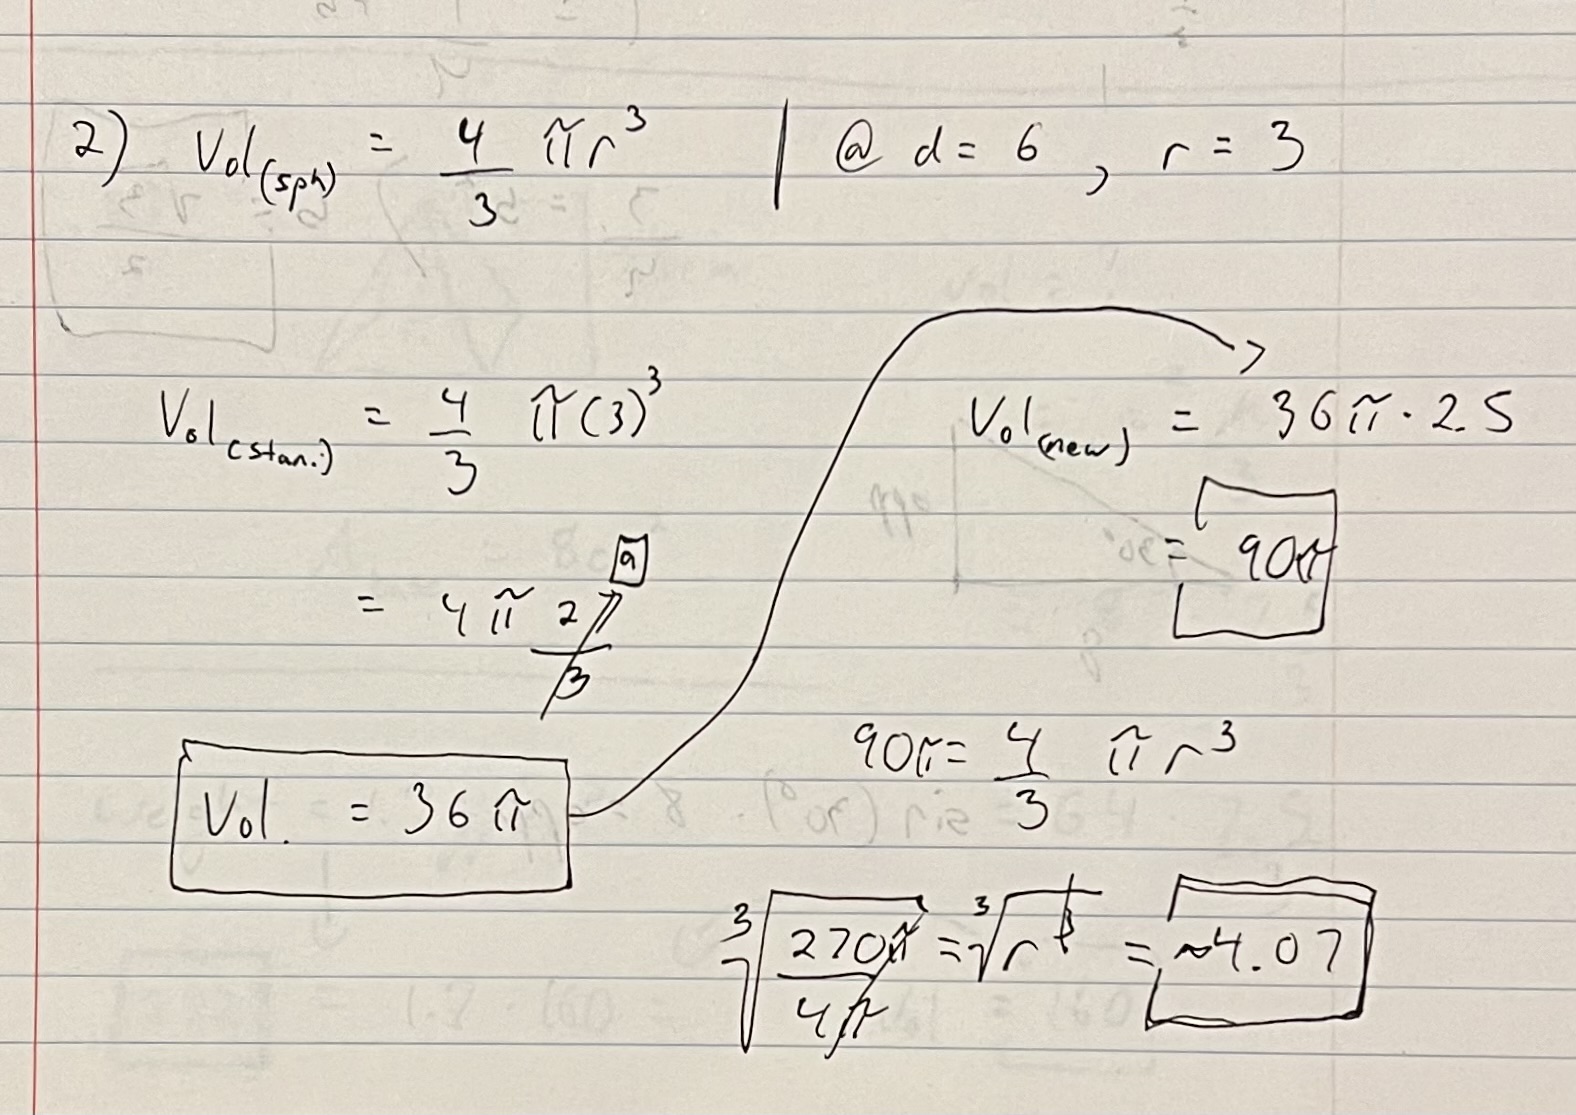 2) Vol(sph) = 4/3 πr³ | @ d = 6 , r = 3
Vol(stan.) = 4/3 π(3)³
= 4π 27/3 9
Vol. = 36π
Vol(new) = 36π · 2.5
= 90π
90π = 4/3 πr³
³√(270π/4π) = ³√r³ = ~4.07